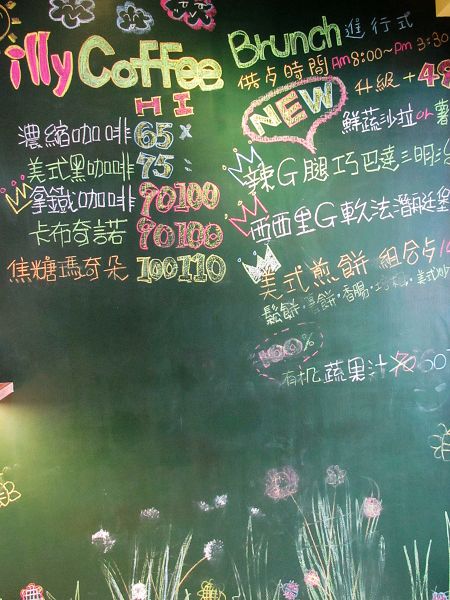 illy Coffee
H I
濃縮咖啡 65 x
美式黑咖啡 75
拿鐵咖啡 90 100
卡布奇諾 90 100
焦糖瑪奇朵 100 110
Brunch 進行式
供点時間 Am8:00~Pm3:30
NEW 升級 +48
鮮蔬沙拉 or 薯
辣G腿巧巴達三明治
西西里G軟法潛艇堡
美式煎餅 組合点
鬆餅
100%
有机蔬果汁 60